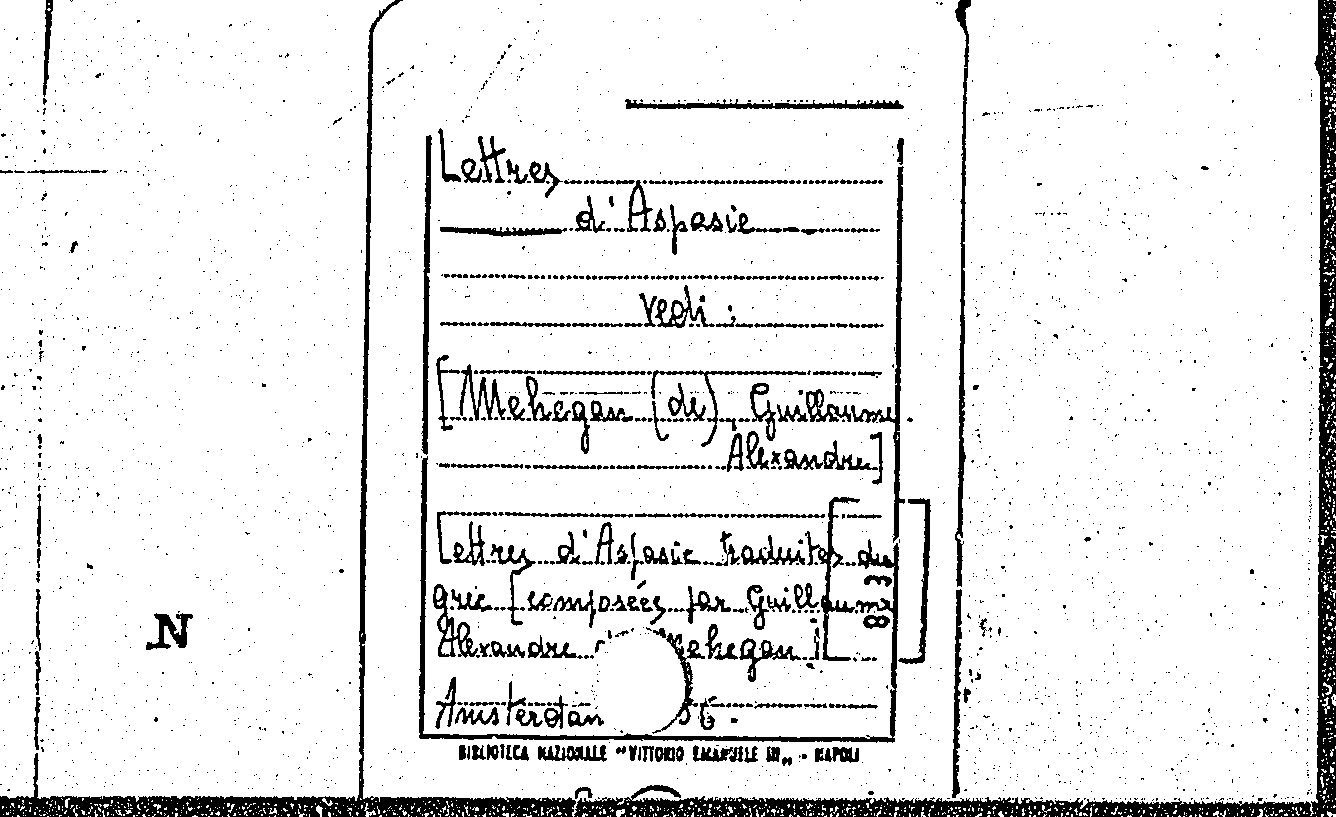 Lettres
d'Aspasie
vedi :
[Mehegan (de) Guillaume.
Alexandre]
Lettres d'Aspasie traduites du
grec [composées par Guillaume
Alexandre Mehegan]
Amsterdam 56.
83
N
BIBLIOTECA NAZIONALE "VITTORIO EMANUELE III„ - NAPOLI